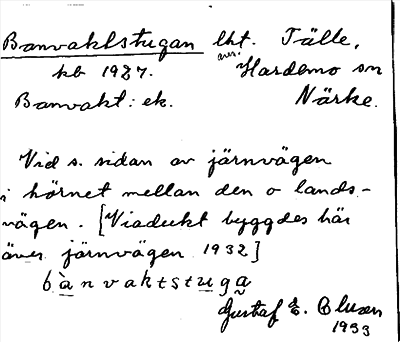 Banvaktstugan lht. Tälle,
avs.
kb 1927. Hardemo sn
Banvakt: ek. Närke.
Vid s. sidan av järnvägen
i hörnet mellan den o lands-
vägen. [Viadukt byggdes här
över järnvägen 1932]
bànvaktstuga
Gustaf E. Clusen
1933